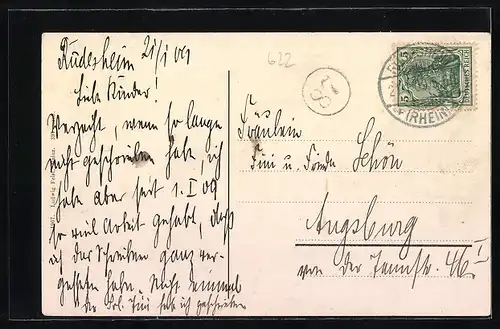 Rüdesheim 21/1 09
Liebe Kinder!
Verzeiht, wenn so lange
nicht geschrieben habe, ich
habe aber seit 1. I 09
so viel Arbeit gehabt, daß
ich das Schreiben ganz ver-
gessen habe. Nicht einmal
der Frl. Fini hab ich geschrieben
622
87
Fräulein
Fini u. Frieda Schön
Augsburg
von der Tannstr. 46 I
5
5
DEUTSCHES REICH
(RHEIN)
Ludwig